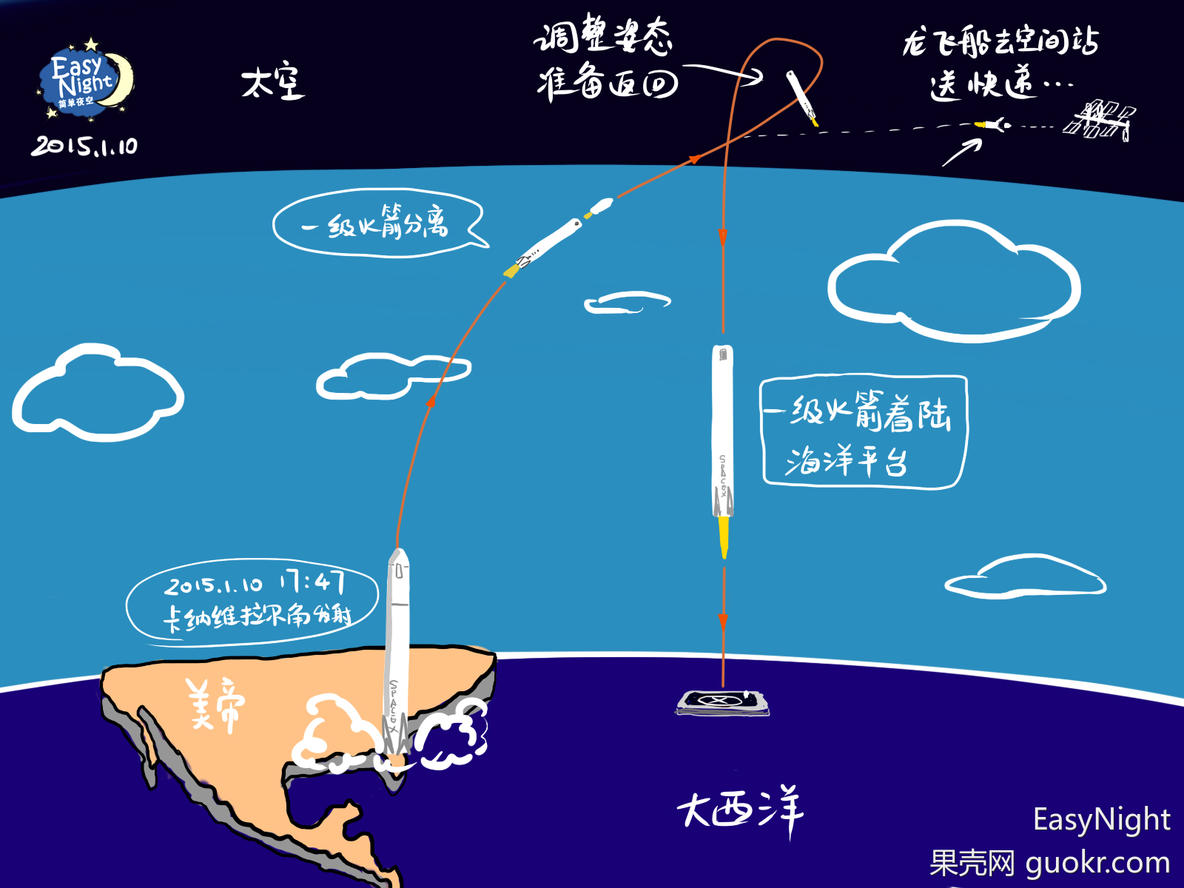 Easy
Night
简单夜空
2015.1.10
太空
调整姿态
准备返回
龙飞船去空间站
送快递…
一级火箭分离
一级火箭着陆
海洋平台
2015.1.10 17:47
卡纳维拉尔角发射
SPACEX
SPACEX
美帝
大西洋
EasyNight
果壳网 guokr.com